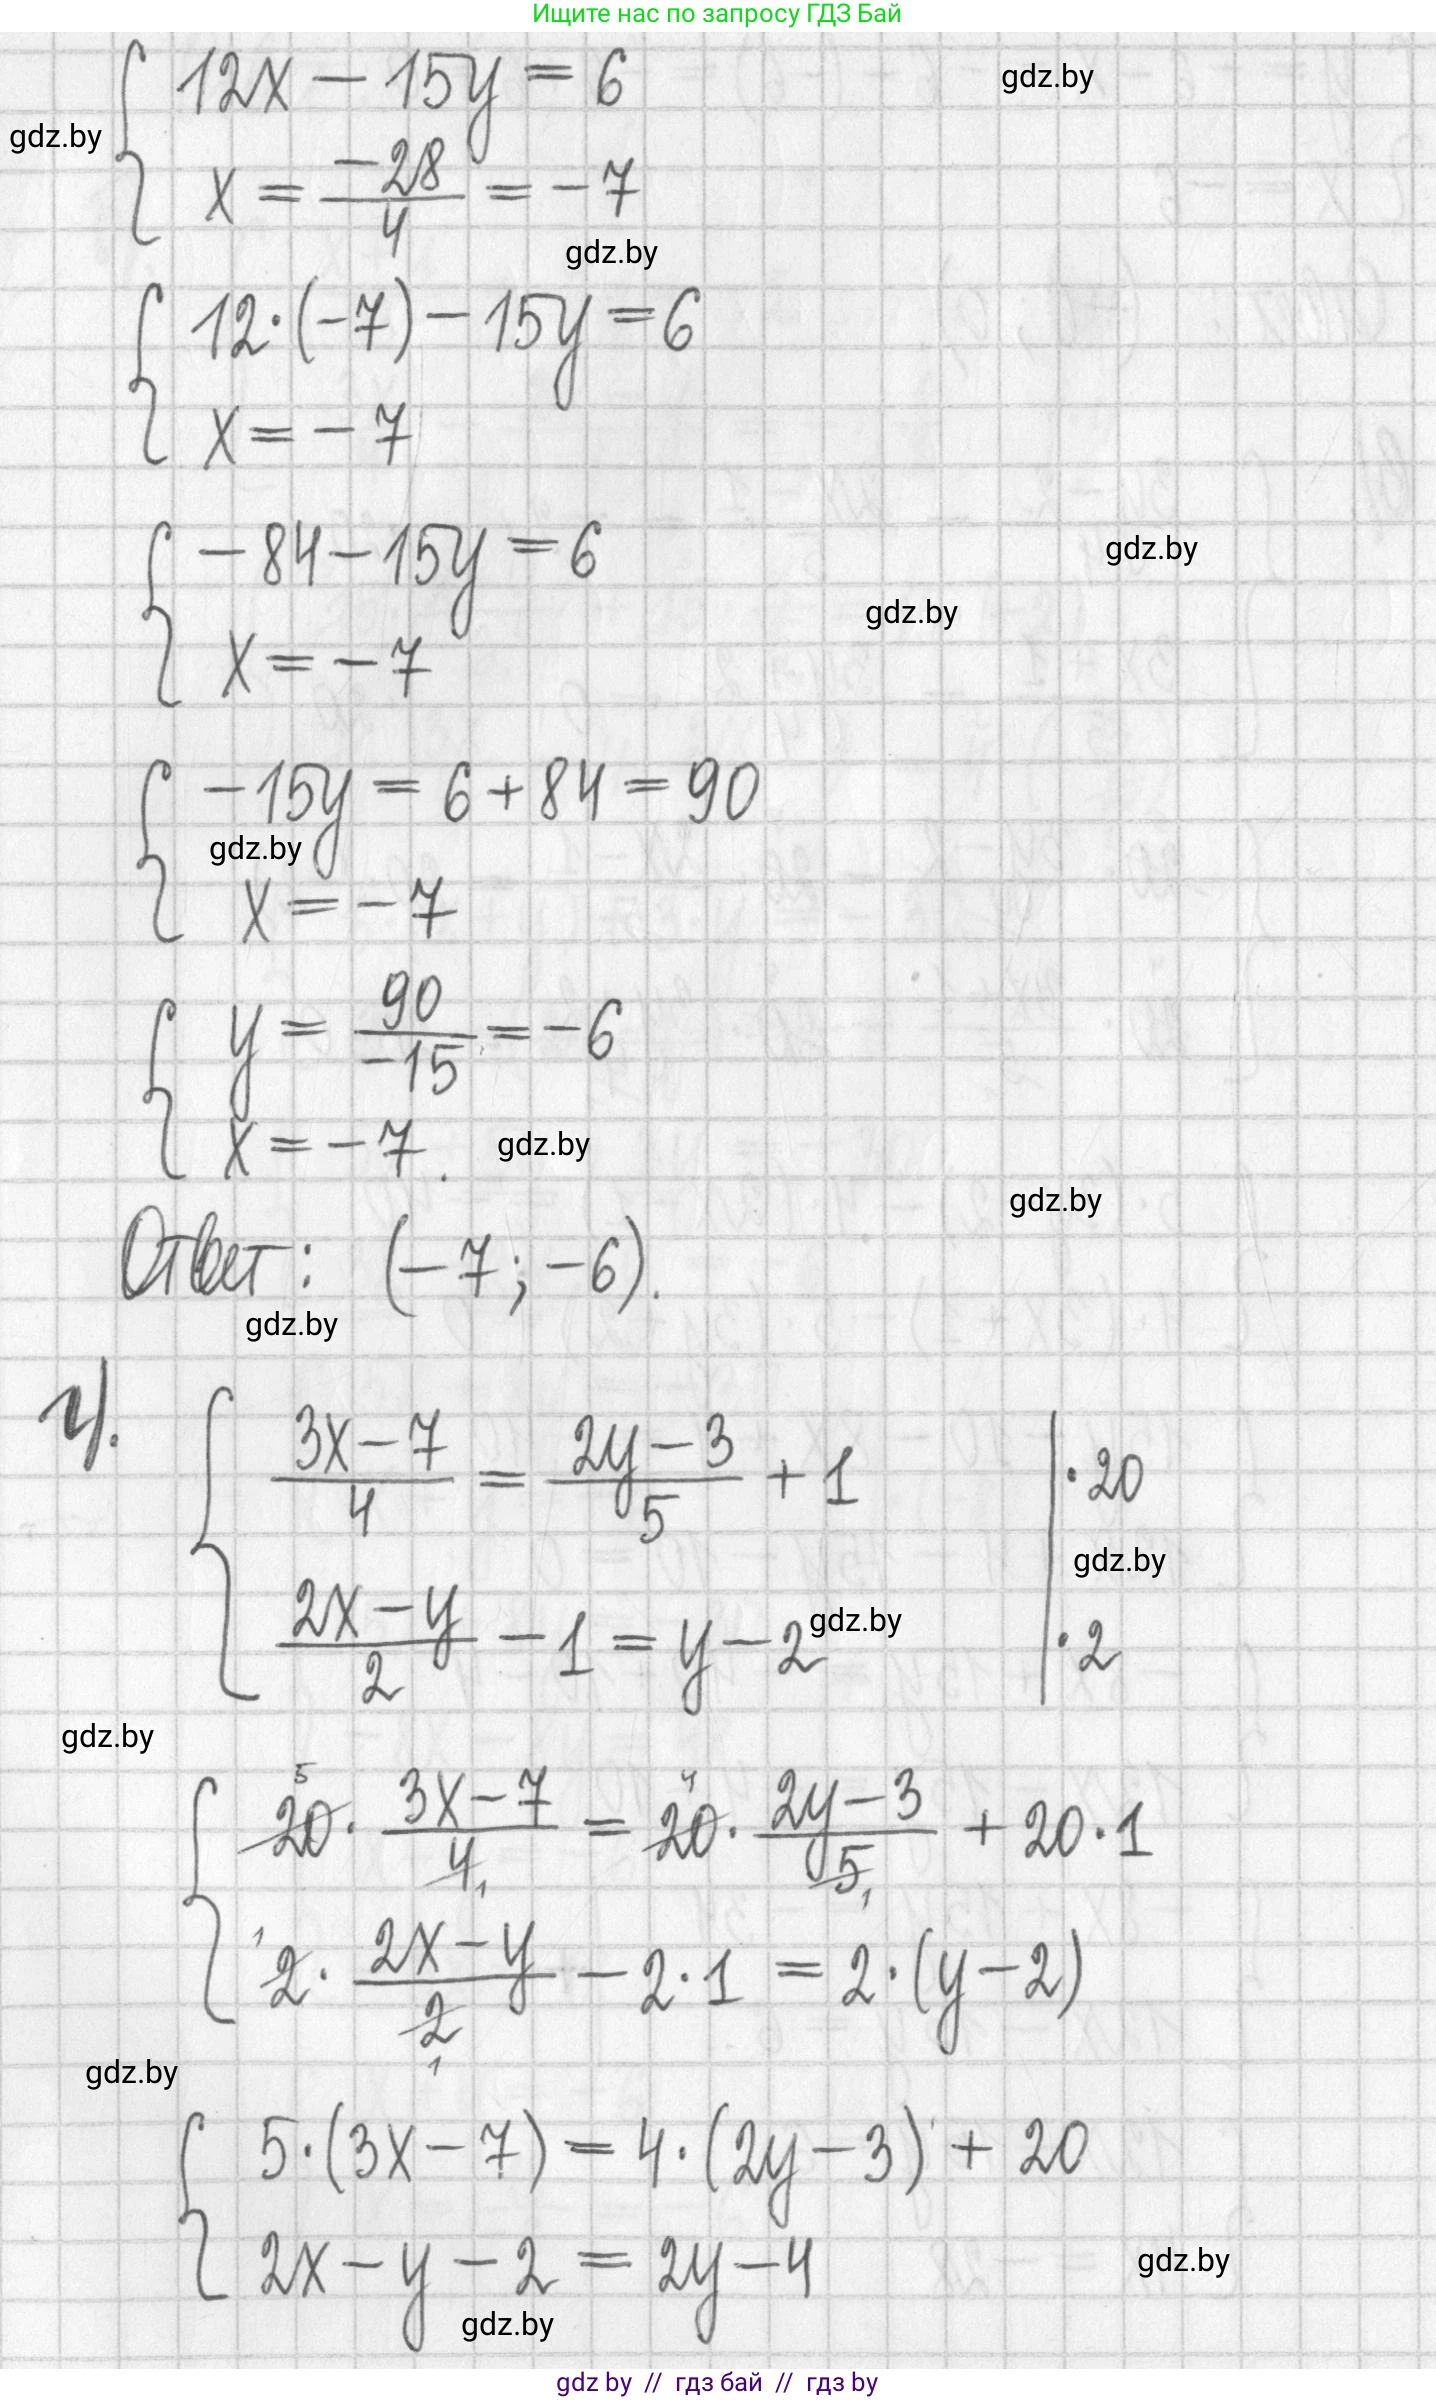 Ищите нас по запросу ГДЗ Бай
12x − 15y = 6
gdz.by
gdz.by
x = −28/4 = −7
gdz.by
12·(−7) − 15y = 6
x = −7
−84 − 15y = 6
gdz.by
gdz.by
x = −7
−15y = 6 + 84 = 90
gdz.by
x = −7
y = 90/−15 = −6
x = −7.
gdz.by
gdz.by
Ответ: (−7; −6).
gdz.by
г). (3x − 7)/4 = (2y − 3)/5 + 1 | ·20
gdz.by
(2x − y)/2 − 1 = y − 2 | ·2
gdz.by
gdz.by
5 4
20 · (3x − 7)/4 1 = 20 · (2y − 3)/5 1 + 20·1
1 2 · (2x − y)/2 1 − 2·1 = 2·(y − 2)
gdz.by
5·(3x − 7) = 4·(2y − 3) + 20
2x − y − 2 = 2y − 4
gdz.by
gdz.by
gdz by // гдз бай // гдз by